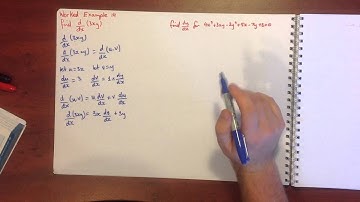 Worked Example 14
find d/dx (3xy)
d/dx (3xy)
d/dx (3x × y) = d/dx (u.v)
let u=3x let v=y
du/dx = 3 dv/dx = 1 × dy/dx
d/dx (u.v) = u dv/dx + v du/dx
d/dx (3xy) = 3x dy/dx + 3y
find dy/dx for